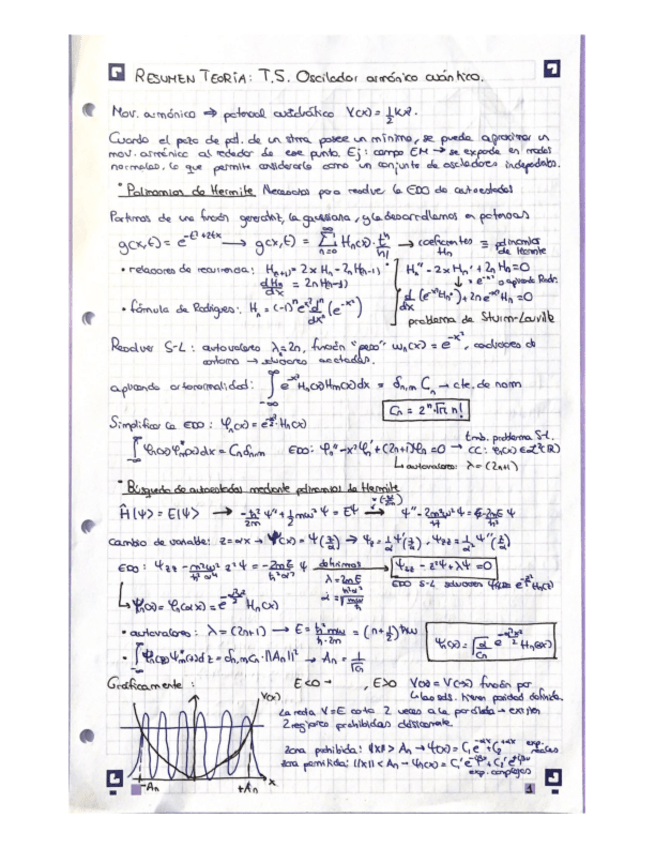 RESUMEN TEORÍA: T.S. Oscilador armónico cuántico.
Mov. armónico ⇒ potencial cuadrático V(x) = 1/2 kx².
Cuando el pozo de pot. de un stma posee un mínimo, se puede aproximar un
mov. armónico alrededor de ese punto. Ej: campo EM → se expande en modos
normales, lo que permite considerarlo como un conjunto de osciladores independts.
* Polinomios de Hermite Necesarios para resolver la EDO de autoestados
Partimos de una función generatriz, la gaussiana, y la desarrollamos en potencias
g(x,t) = e^{-t²+2tx} → g(x,t) = Σ_{n=0}^{∞} H_n(x) · t^n/n! → coeficientes H_n ≡ polinomios de Hermite
• relaciones de recurrencia: H_{n+1} = 2x H_n - 2n H_{n-1}
dH_n/dx = 2n H_{n-1}
H_n'' - 2x H_n' + 2n H_n = 0
• fórmula de Rodrigues: H_n = (-1)^n e^{x²} d^n/dx^n (e^{-x²})
d/dx (e^{-x²} H_n') + 2n e^{-x²} H_n = 0
problema de Sturm-Liouville
Resolver S-L: autovalores λ_n = 2n, función "peso" w_n(x) = e^{-x²}, condiciones de
contorno → soluciones acotadas.
aplicando ortonormalidad: ∫_{-∞}^{∞} e^{-x²} H_n(x) H_m(x) dx = δ_{n,m} C_n → cte. de norm
C_n = 2^n √π n!
Simplificar la EDO: φ_n(x) = e^{-x²/2} · H_n(x)
∫_{-∞}^{∞} φ_n(x) φ_m^*(x) dx = C_n δ_{n,m} EDO: φ_n'' - x² φ_n' + (2n+1) φ_n = 0 → tmb. problema S-L. CC: φ_n(x) ∈ L²(R)
↳ autovalores: λ = (2n+1)
* Búsqueda de autoestados mediante polinomios de Hermite
Ĥ|Ψ⟩ = E|Ψ⟩ → -ħ²/2m Ψ'' + 1/2 mω² Ψ = EΨ →
Cambio de variable: z = αx → Ψ(x) = Ψ(z/α) → Ψ_z = 1/α Ψ'(z/α), Ψ_zz = 1/α² Ψ''(z/α)
EDO: Ψ_zz - m²ω²/ħ²α⁴ z² Ψ = -2mE/ħ²α² Ψ definimos → Ψ_zz - z²Ψ + λΨ = 0
λ = 2mE/ħ²α²
α = √(mω/ħ)
• autovalores: λ = (2n+1) → E = (n+1/2) ħω
• → A_n = 1/√C_n
Gráficamente:
E<0 → , E>0 V(x) = V(-x) función par
↳ las sols. tienen paridad definida.
V(x)
La recta V=E corta 2 veces a la parábola → existen
2 regiones prohibidas clásicamente.
zona prohibida: |x| > A_n → exp. reales
zona permitida: |x| < A_n → exp. complejas
-A_n +A_n x
1